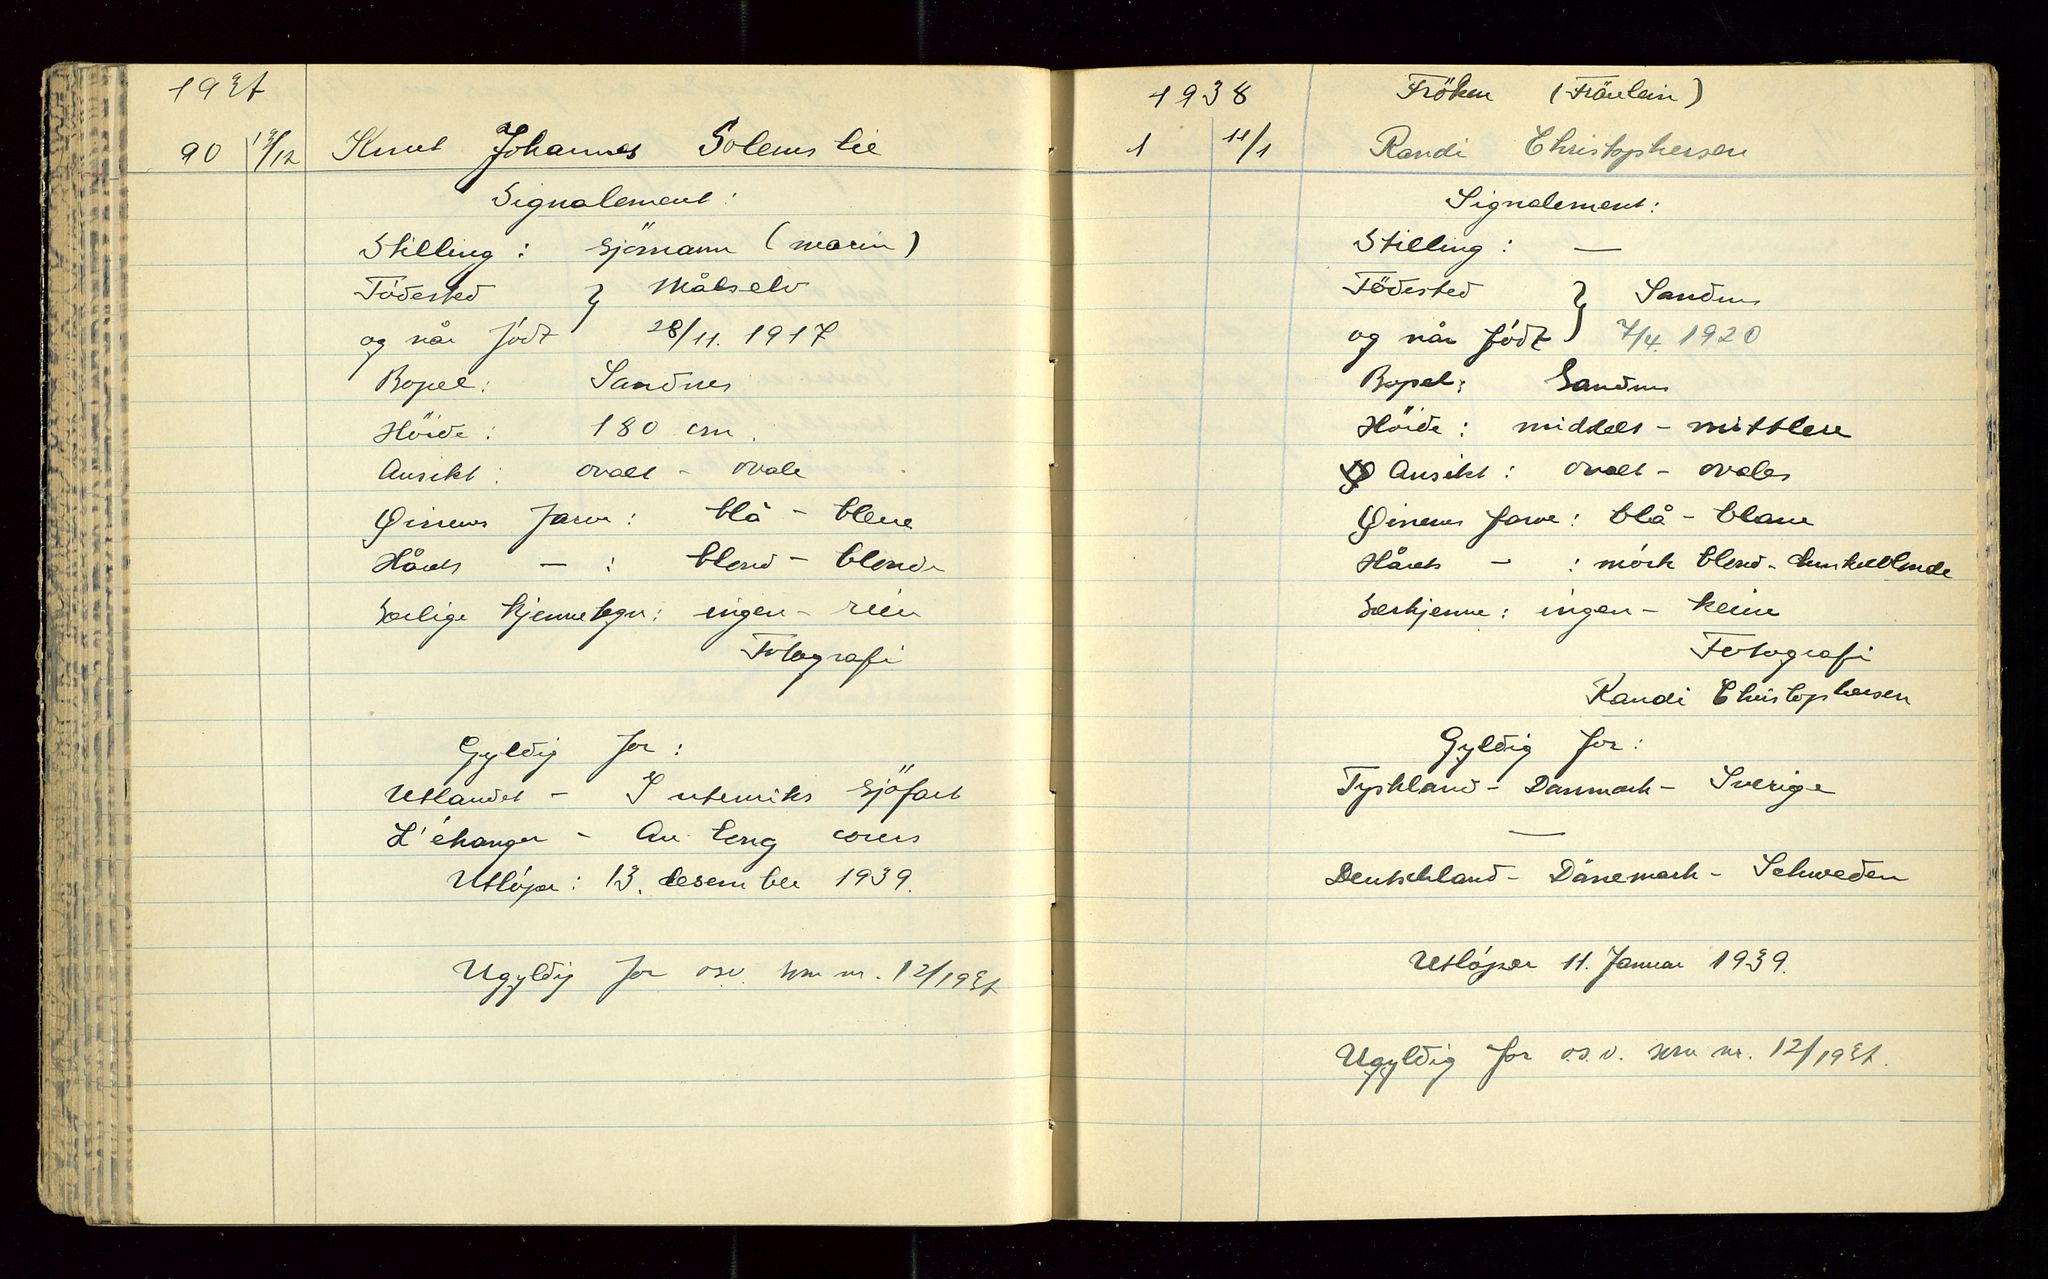 1937
90 13/12 Knut Johannes Solemslie
Signalement:
Stilling: sjömann (marin)
Födested } Målselv
og når födt 28/11. 1917
Bopel: Sandnes
Höide: 180 cm.
Ansikt: ovalt - ovale
Øinenes farve: blå - bleue
Hårets — : blond - blonde
Særlige kjennetegn: ingen - rien
Fotografi
Gyldig for:
Utlandet - I utenriks sjöfart
L'étranger - Au long cours
Utlöper: 13. desember 1939.
Ugyldig for osv. som nr. 12/1937
1938 Fröken (Fräulein)
1 11/1 Randi Christophersen
Signalement:
Stilling: —
Födested } Sandnes
og når födt 7/4. 1920
Bopel: Sandnes
Höide: middels - mittlere
Ansikt: ovalt - ovales
Øinenes farve: blå - blaue
Hårets — : mörk blond - dunkelblonde
Særkjenne: ingen - keine
Fotografi
Randi Christophersen
Gyldig for:
Tyskland - Danmark - Sverige
—
Deutschland - Dänemark - Schweden
Utlöper 11. Januar 1939.
Ugyldig for os.v. som nr. 12/1937.